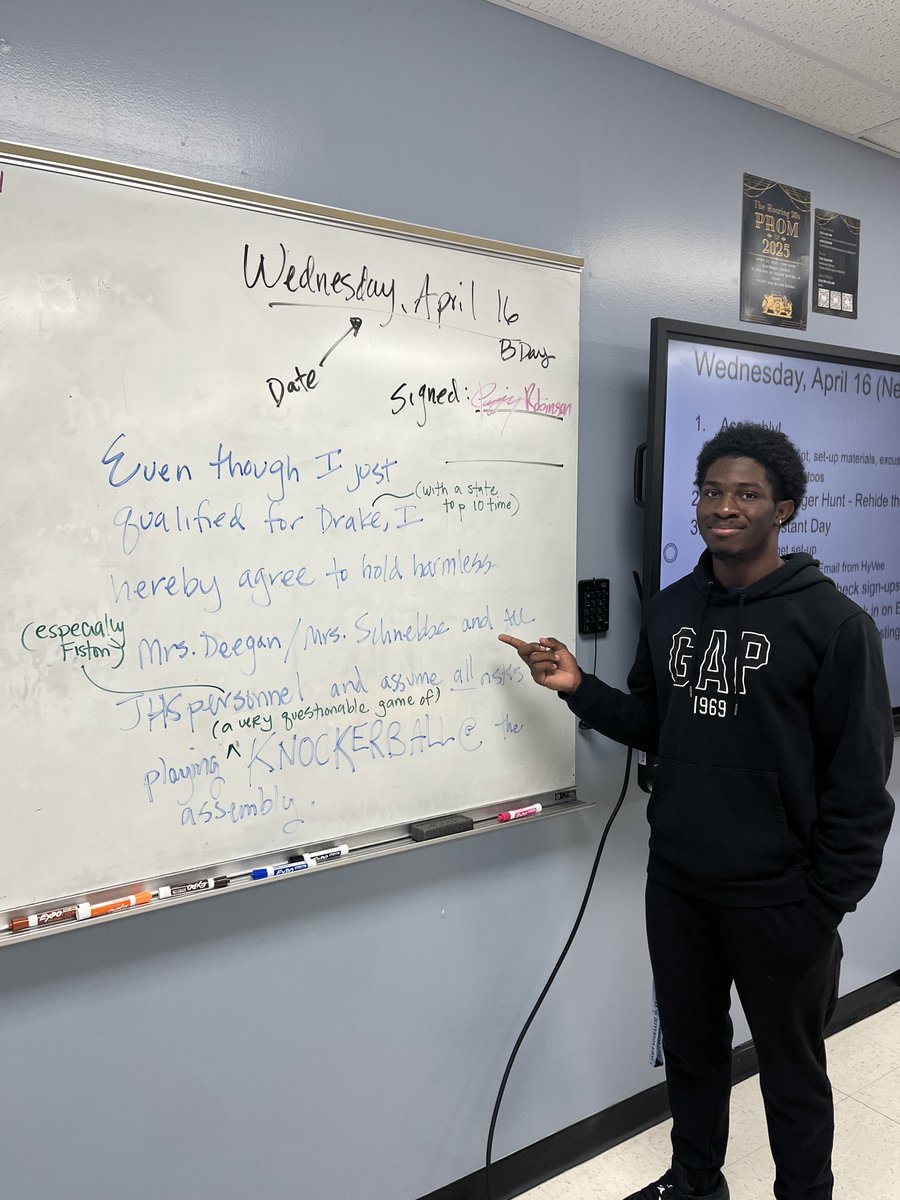 Wednesday, April 16
B Day
Date
Signed: Robinson
Even though I just
(with a state
top 10 time)
qualified for Drake, I
hereby agree to hold harmless
(especially
Fiston)
Mrs. Deegan/Mrs. Schnebbe and all
JHS personnel and assume all risks
(a very questionable game of)
playing ^ KNOCKERBALL @ the
assembly.
EXPO
The Roaring 20s
PROM
2025
Wednesday, April 16 (Ne
1. Assembly!
set-up materials, excus
toos
2
ger Hunt - Rehide th
3
stant Day
set-up
Email from HyVee
heck sign-ups
k in on
sting
GAP
1969